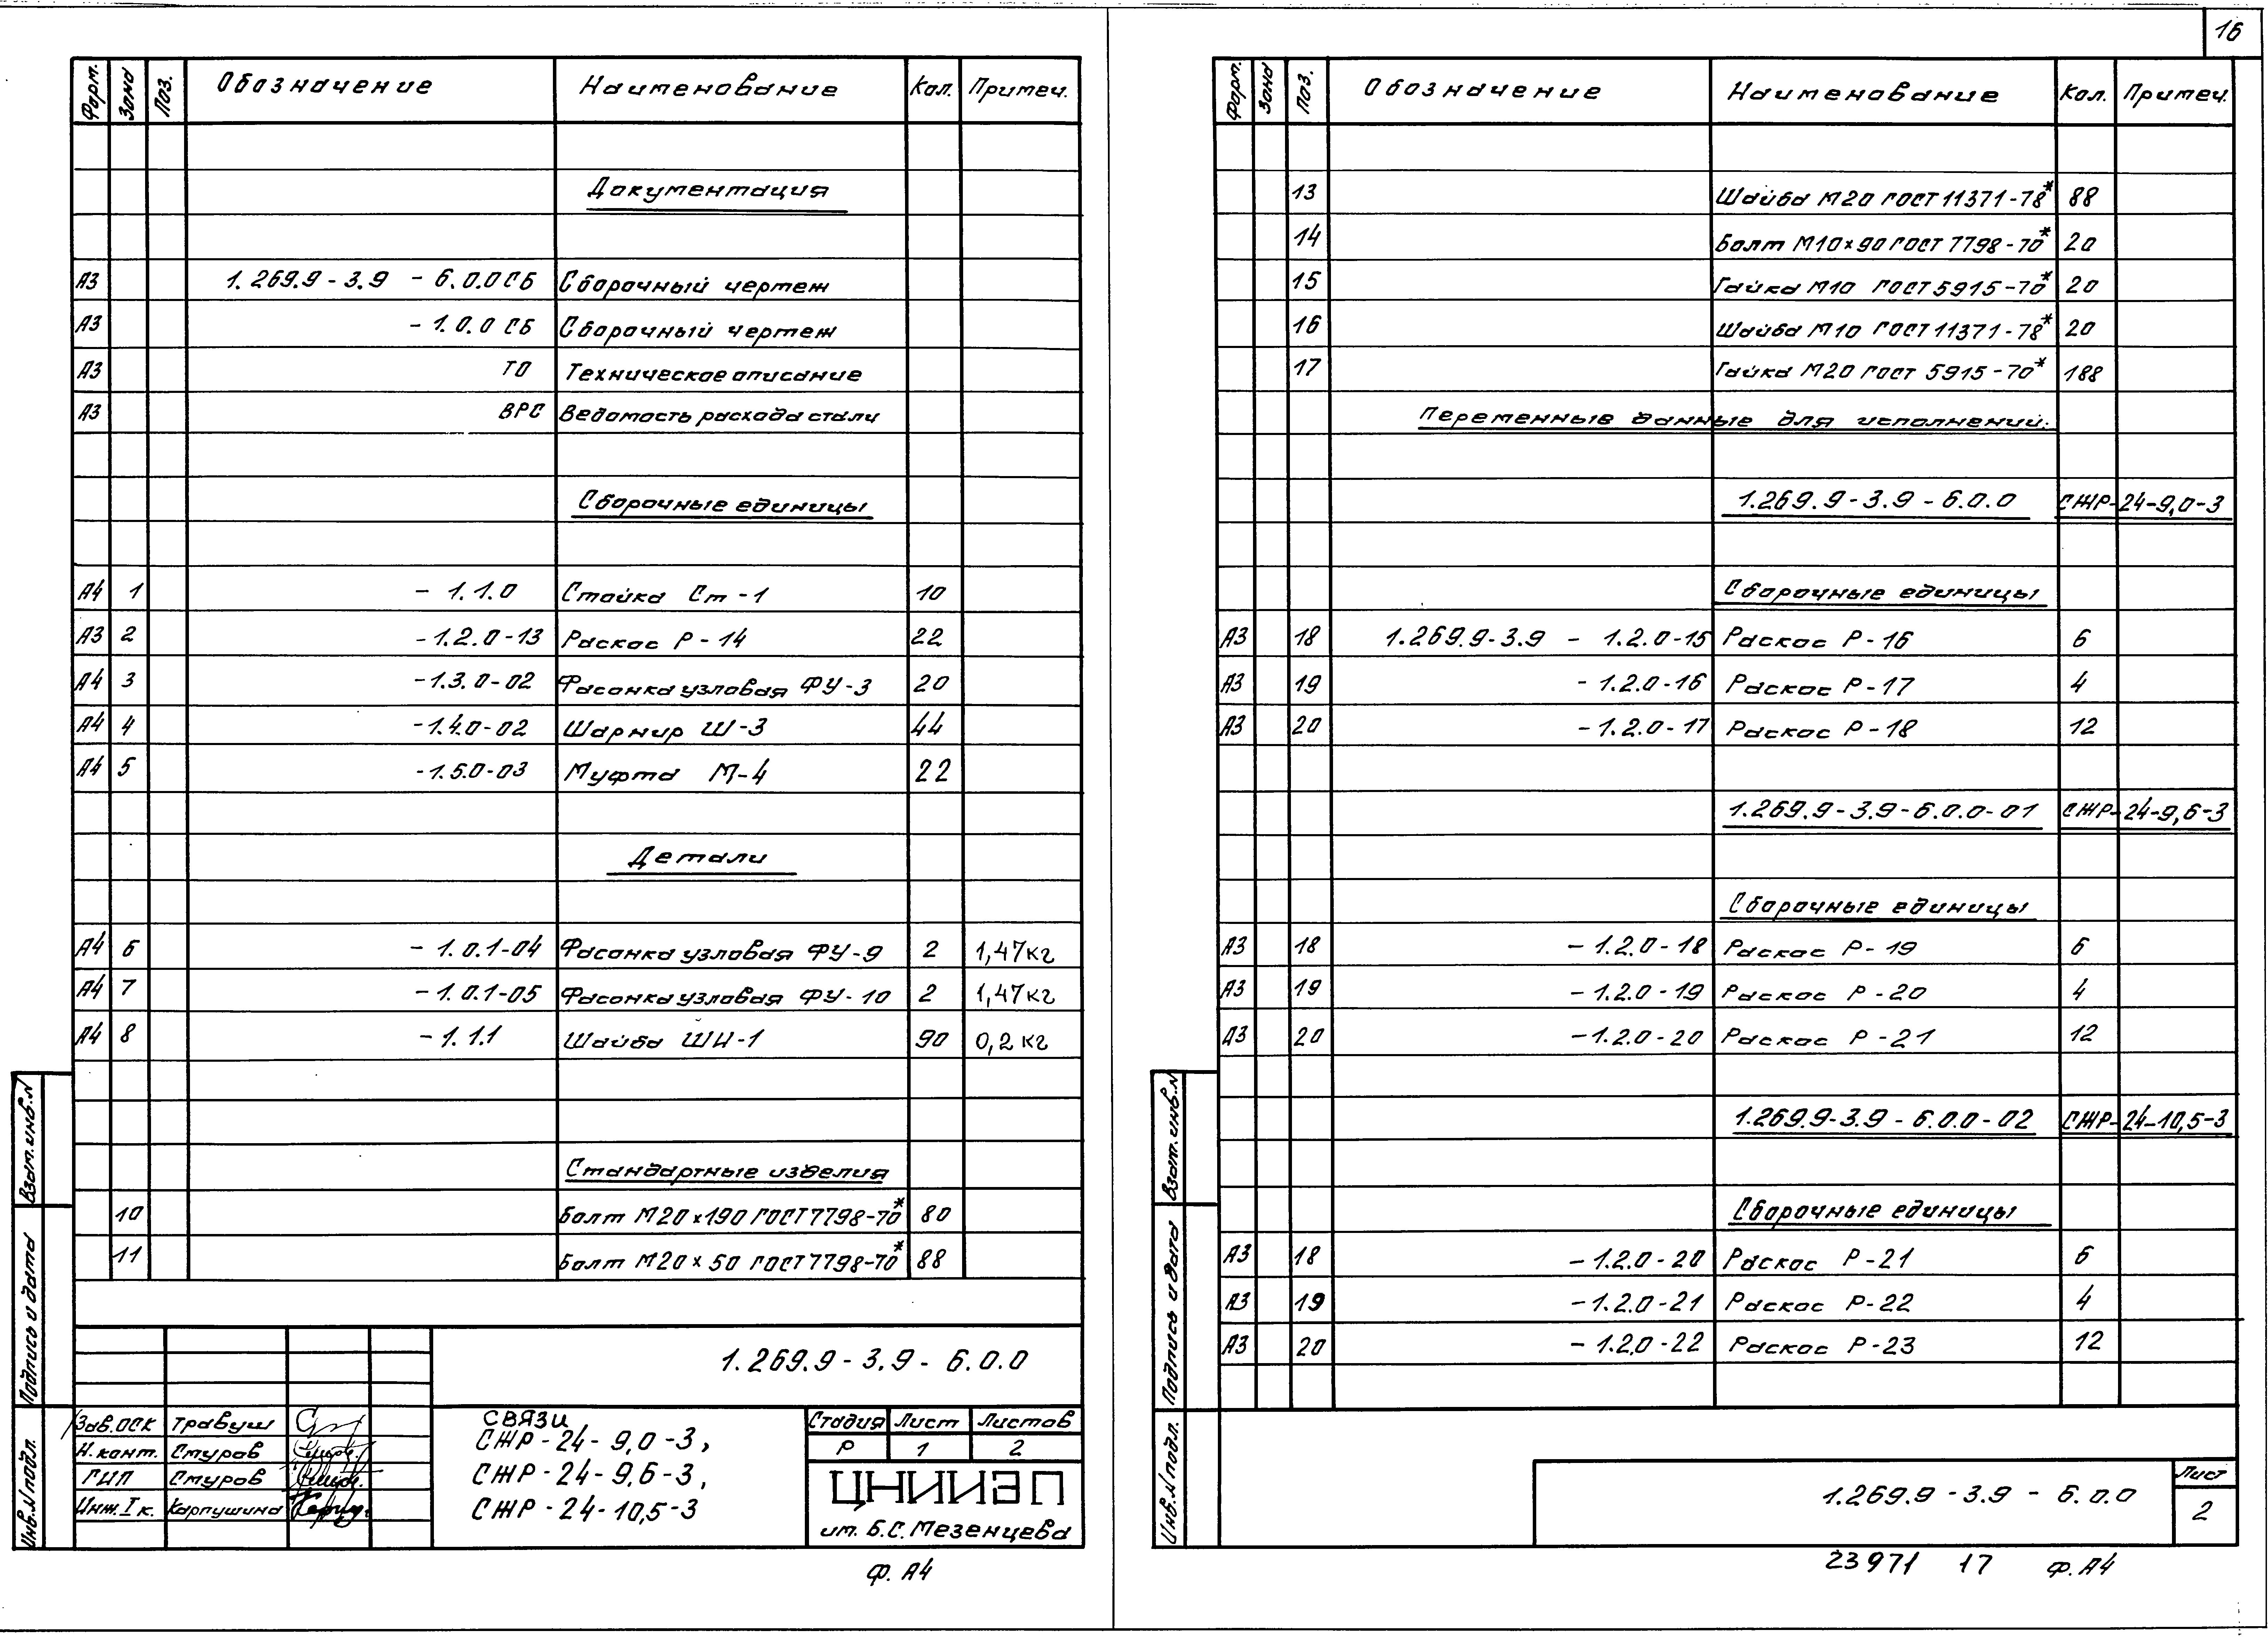 16
Форм. Зона Поз. Обозначение Наименование Кол. Примеч.
Документация
А3 1.269.9-3.9 - 6.0.0 СБ Сборочный чертеж
А3 - 1.0.0 СБ Сборочный чертеж
А3 ТО Техническое описание
А3 ВРС Ведомость расхода стали
Сборочные единицы
А4 1 - 1.1.0 Стойка Ст-1 10
А3 2 - 1.2.0-13 Раскос Р-14 22
А4 3 - 1.3.0-02 Фасонка узловая ФУ-3 20
А4 4 - 1.4.0-02 Шарнир Ш-3 44
А4 5 - 1.5.0-03 Муфта М-4 22
Детали
А4 6 - 1.0.1-04 Фасонка узловая ФУ-9 2 1,47кг
А4 7 - 1.0.1-05 Фасонка узловая ФУ-10 2 1,47кг
А4 8 - 1.1.1 Шайба ШЙ-1 90 0,2 кг
Стандартные изделия
10 Болт М20×190 ГОСТ 7798-70* 80
11 Болт М20×50 ГОСТ 7798-70* 88
1.269.9-3.9-6.0.0
Зав.ОСК Травуш
Н.конт. Смуров
ГИП Смуров
Инж.I к. Карпушина
СВЯЗИ
СЖР-24-9,0-3,
СЖР-24-9,6-3,
СЖР-24-10,5-3
Стадия Лист Листов
Р 1 2
ЦНИИЭП
им. Б.С. Мезенцева
Ф. А4
Взам.инв.N
Подпись и дата
Инв.N подл.
Форм. Зона Поз. Обозначение Наименование Кол. Примеч.
13 Шайба М20 ГОСТ 11371-78* 88
14 Болт М10×90 ГОСТ 7798-70* 20
15 Гайка М10 ГОСТ 5915-70* 20
16 Шайба М10 ГОСТ 11371-78* 20
17 Гайка М20 ГОСТ 5915-70* 188
Переменные данные для исполнений:
1.269.9-3.9-6.0.0 СЖР-24-9,0-3
Сборочные единицы
А3 18 1.269.9-3.9 - 1.2.0-15 Раскос Р-16 6
А3 19 - 1.2.0-16 Раскос Р-17 4
А3 20 - 1.2.0-17 Раскос Р-18 12
1.269.9-3.9-6.0.0-01 СЖР-24-9,6-3
Сборочные единицы
А3 18 - 1.2.0-18 Раскос Р-19 6
А3 19 - 1.2.0-19 Раскос Р-20 4
А3 20 - 1.2.0-20 Раскос Р-21 12
1.269.9-3.9-6.0.0-02 СЖР-24-10,5-3
Сборочные единицы
А3 18 - 1.2.0-20 Раскос Р-21 6
А3 19 - 1.2.0-21 Раскос Р-22 4
А3 20 - 1.2.0-22 Раскос Р-23 12
1.269.9-3.9-6.0.0
Лист
2
23971 17 Ф. А4
Взам.инв.N
Подпись и дата
Инв.N подл.